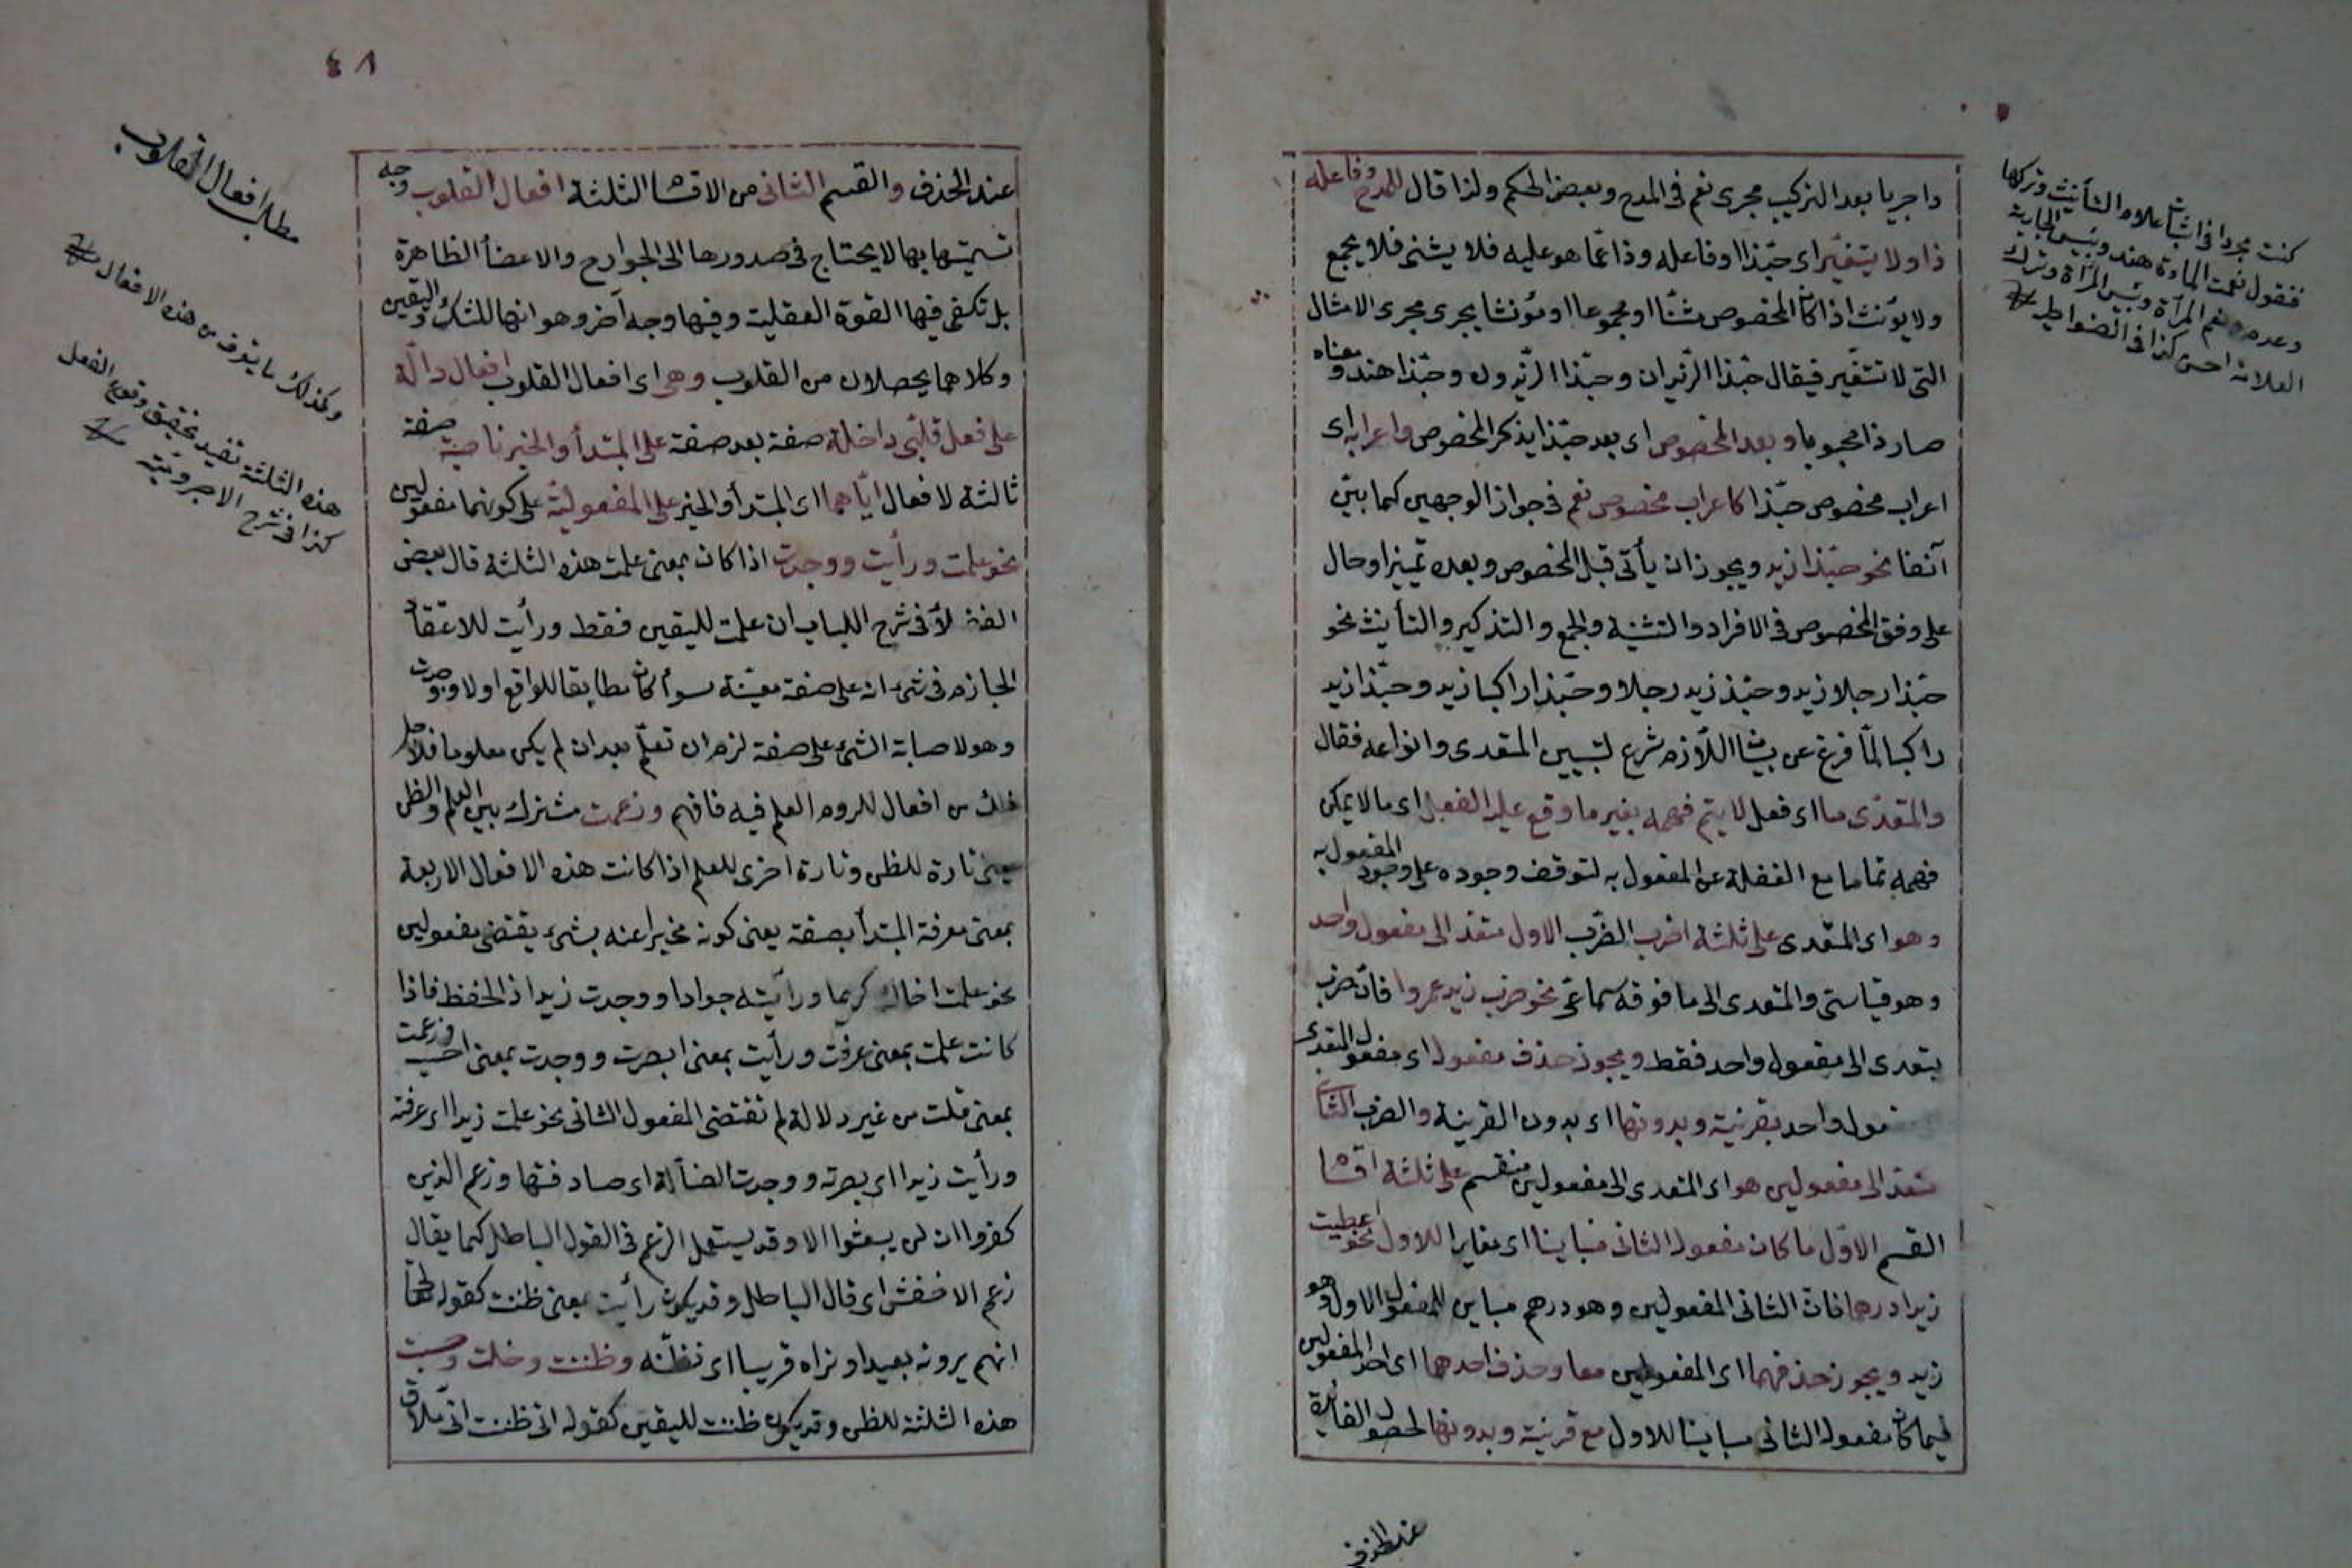 واجريا بعد التركيب مجرى نعم فى المدح وبعض الحكم ولذا قال للمدح وفاعله
ذا ولا يتغير اى حبّذا او فاعله وذا عمّا هو عليه فلا يثنى فلا يجمع
ولا يؤنث اذا كان المخصوص مثنّا او مجموعا او مؤنثا يجرى مجرى الامثال
التى لا تتغيّر فيقال حبّذا الزّيدان وحبّذا الزّيدون وحبّذا هند ومعناه
صار ذا محبوبا وبعد المخصوص اى بعد حبّذا يذكر المخصوص واعرابه اى
اعراب مخصوص حبّذا كاعراب مخصوص نعم فى جواز الوجهين كما بيّن
آنفا نحو حبّذا زيد ويجوز ان يأتى قبل المخصوص وبعده تمييز او حال
على وفق المخصوص فى الافراد والتثنية والجمع والتذكير والتأنيث نحو
حبّذا رجلا زيد وحبّذ زيد رجلا وحبّذا راكبا زيد وحبّذا زيد
راكبا لمّا فرغ عن بيان اللّازم شرع لتبيين المتعدى وانواعه فقال
والمتعدّى ما اى فعل لا يتم فهمه بغير ما وقع عليه الفعل اى ما لا يمكن
فهمه تماما مع الغفلة عن المفعول به لتوقف وجوده على وجود المفعول به
وهو اى المتعدى على ثلثة اضرب الضّرب الاول متعد الى مفعول واحد
وهو قياسىّ والمتعدى الى ما فوقه سماعىّ نحو ضرب زيد عمروا فانّ ضرب
يتعدى الى مفعول واحد فقط ويجوز حذف مفعوله اى مفعول المتعدى
واحد بقرينة وبدونها اى بدون القرينة والضرب الثانى
متعد الى مفعولين هو اى المتعدى الى مفعولين منقسم على ثلثة اقسام
القسم الاوّل ما كان مفعوله الثانى مباينا اى مغايرا للاول نحو اعطيت
زيدا درهما فانّ الثانى المفعولين وهو درهم مباين للمفعول الاول وهو
زيد ويجوز حذفهما اى المفعولين معا وحذف احدهما اى احد المفعولين
فيما كان مفعوله الثانى مباينا للاول مع قرينة وبدونها لحصول الفائدة
عند الحذف
كنت مجردا فى اثبات علامة التأنيث وتركها
فتقول نعمت المرأة هند وبئس الجارية
وعدمه نعم المرأة وبئس المرأة وترك
العلامة احسن كذا فى الضوابط
٤٨
عند الحذف والقسم الثانى من الاقسام الثلثة افعال القلوب وجه
تسميتها بها لا يحتاج فى صدورها الى الجوارح والاعضأ الظاهرة
بل تكفى فيها القوة العقلية وفيها وجه آخر وهو انها للشك واليقين
وكلاهما يحصلان من القلوب وهى اى افعال القلوب افعال دالّة
على فعل قلبى داخلة صفة بعد صفة على المبتدأ والخبر ناصبة صفة
ثالثة لافعال ايّاهما اى المبتدأ والخبر على المفعوليّة على كونهما مفعولين
نحو علمت ورأيت ووجدت اذا كان بمعنى علمت هذه الثلثة قال بعض
الفضلأ فى شرح اللباب ان علمت لليقين فقط ورأيت للاعتقاد
الجازم فى شئ انه على صفة معيّنة سوأ كان مطابقا للواقع اولا ووجدت
وهو لاصابة الشئ على صفة لزم ان تعلم بعد ان لم يكن معلوما فلاجل
ذلك من افعال للزوم العلم فيه فافهم وزعمت مشترك بين العلم والظن
يعنى تارة للظن وتارة اخرى للعلم اذا كانت هذه الافعال الاربعة
بمعنى معرفة المبتدأ بصفة يعنى كونه مخبرا عنه بشئ يقتضى مفعولين
نحو علمت اخاك كريما ورأيته جوادا ووجدت زيدا ذا الحفظ فاذا
كانت علمت بمعنى عرفت ورأيت بمعنى ابصرت ووجدت بمعنى وزعمت
بمعنى قلت من غير دلالة لم تقتضى المفعول الثانى نحو علمت زيدا اى عرفته
ورأيت زيدا اى بصرته ووجدت الضألة اى صادفتها وزعم الذين
كفروا ان لن يبعثوا الا وقد يستعمل الزعم فى القول الباطل كما يقال
زعم الاخفش اى قال الباطل وقد يكون رأيت بمعنى ظننت كقوله تعالى
انهم يرونه بعيدا ونراه قريبا اى نظنّه وظننت وخلت وحسبت
هذه الثلثة للظن وقد يكون ظننت لليقين كقوله انى ظننت انى ملاق
مطلب افعال القلوب
وكذلك ما يتصرف من هذه الافعال
هذه الثلثة تفيد تحقيق وقوع الفعل
كذا فى شرح الاجرومية